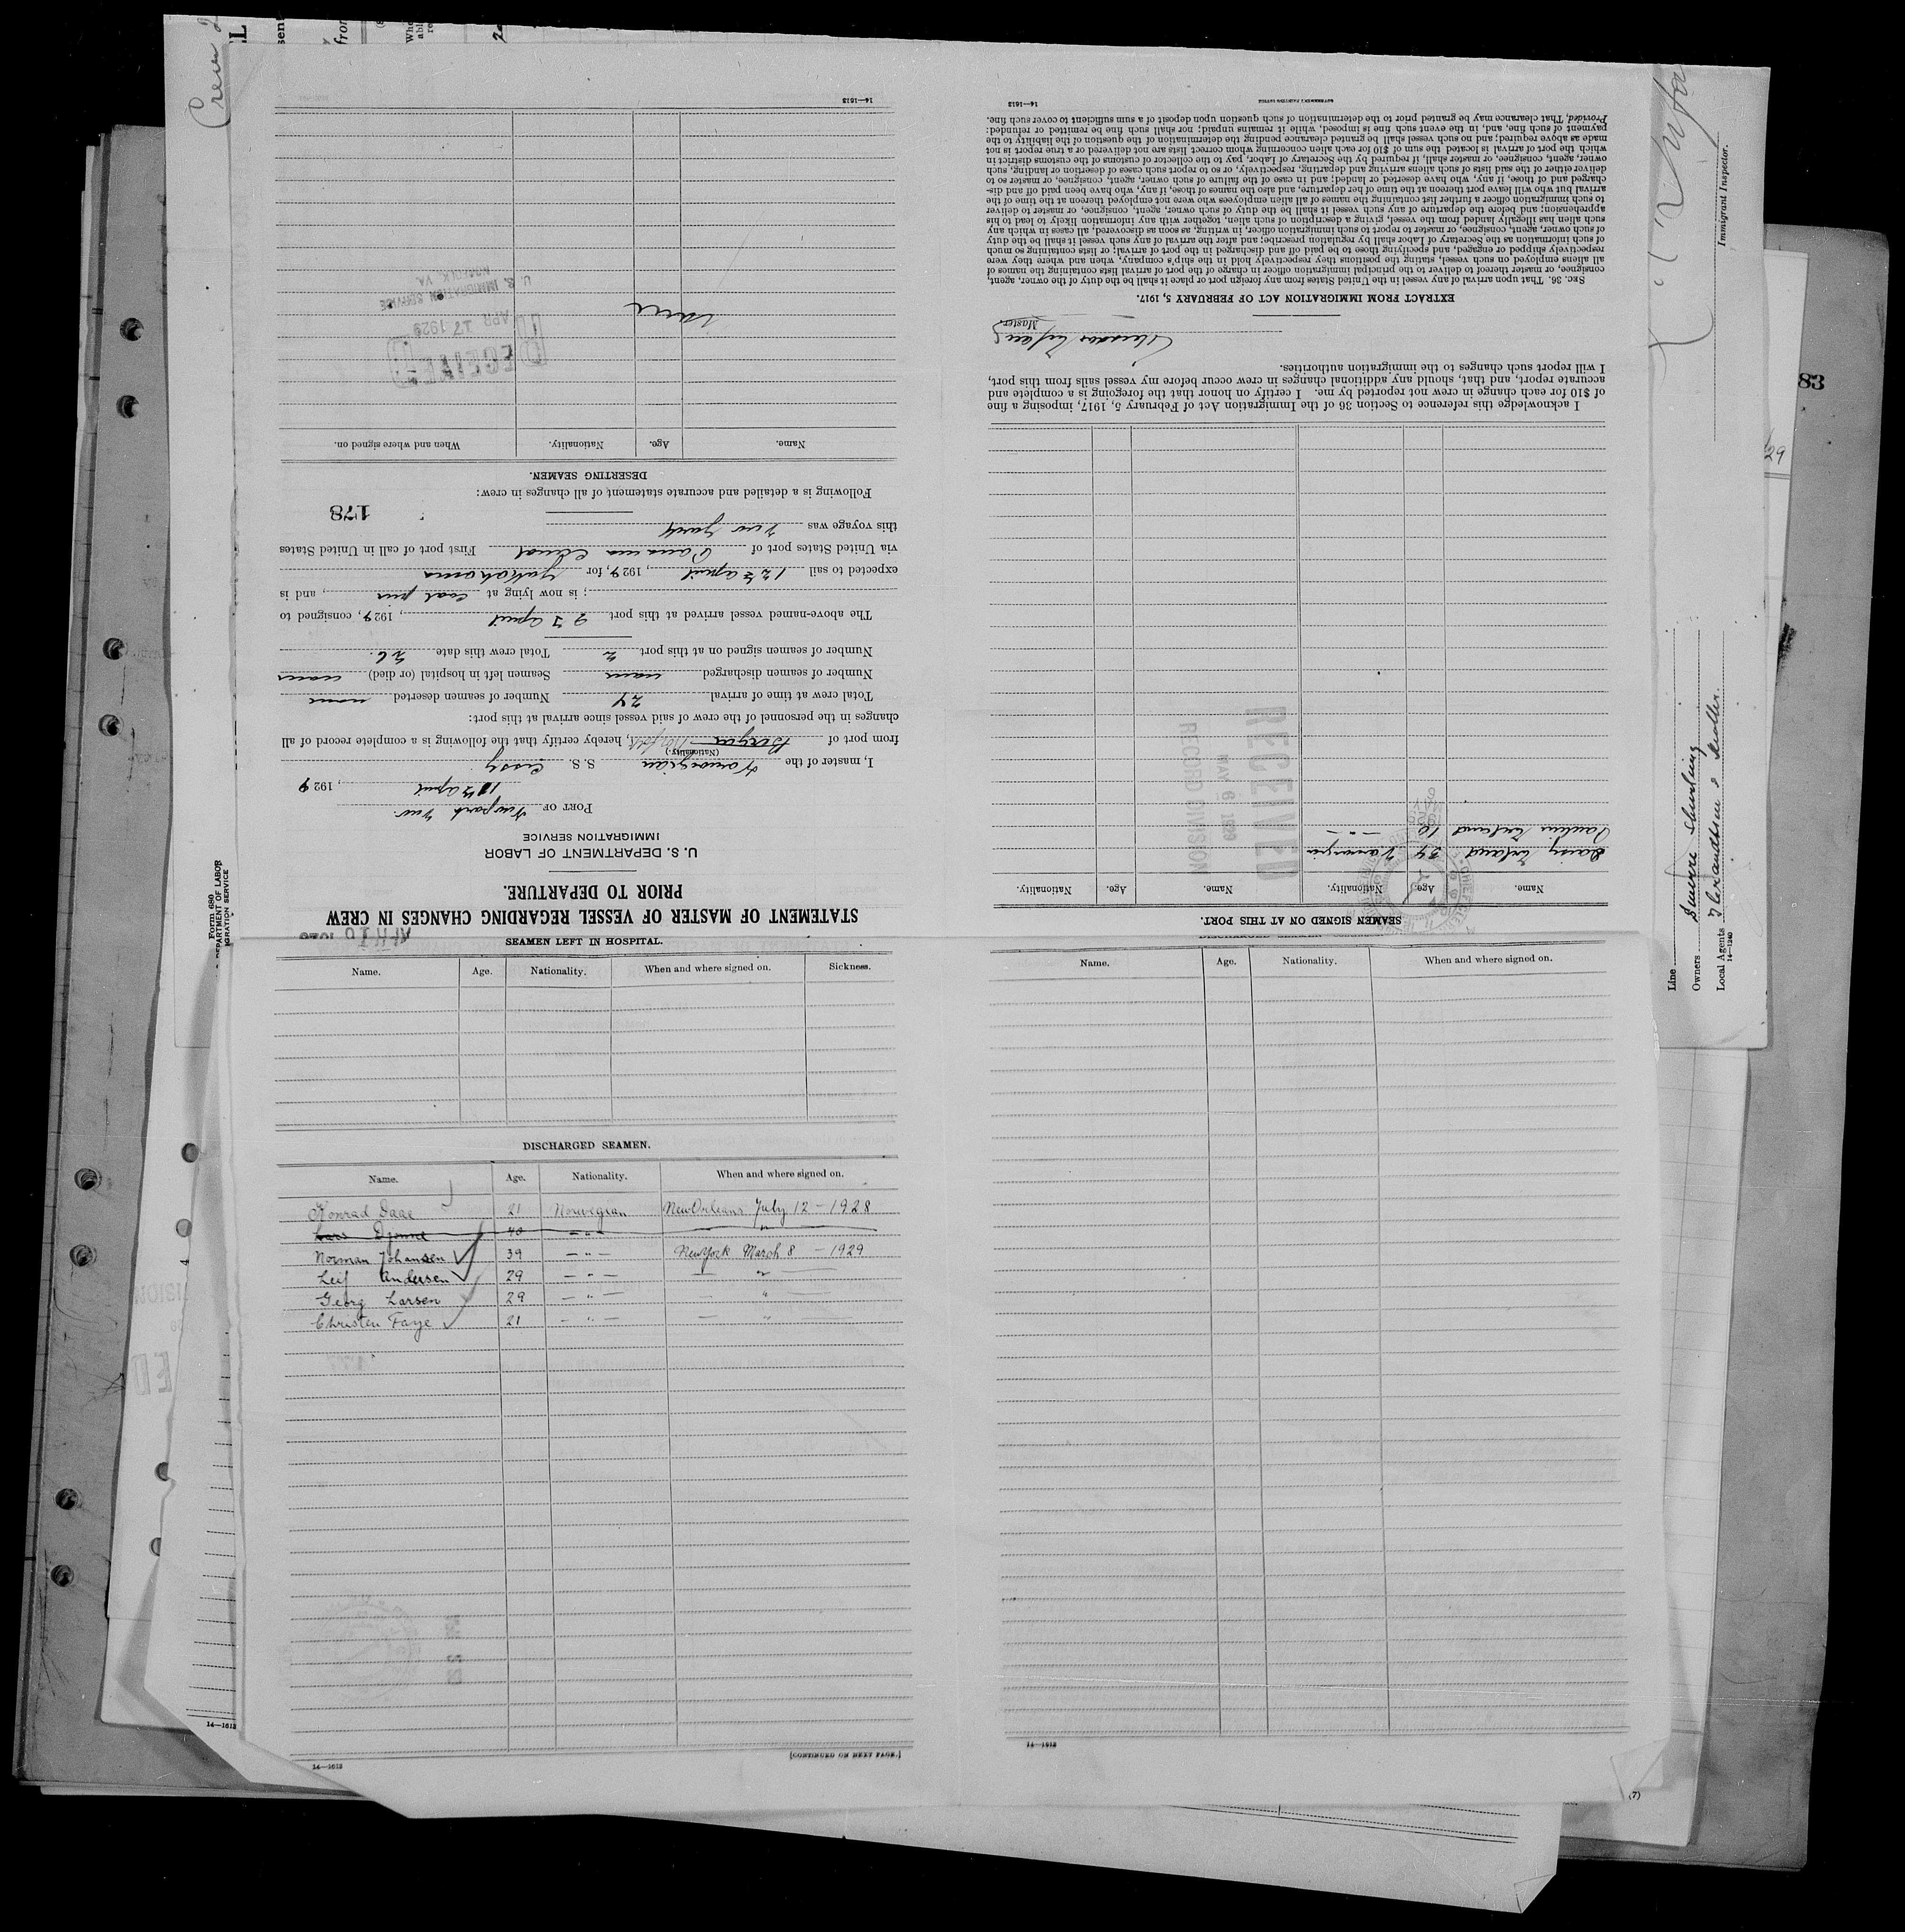 STATEMENT OF MASTER OF VESSEL REGARDING CHANGES IN CREW
PRIOR TO DEPARTURE.
U. S. DEPARTMENT OF LABOR
IMMIGRATION SERVICE
PORT OF Newport News.
11th april, 1929
I, master of the Norwegian S. S.
(Nationality.)
from port of Norfolk, hereby certify that the following is a complete record of all
changes in the personnel of the crew of said vessel since arrival at this port:
Total crew at time of arrival 24 Number of seamen deserted none
Number of seamen discharged none Seamen left in hospital (or died) none
Number of seamen signed on at this port 2 Total crew this date 26.
The above-named vessel arrived at this port april, 1929, consigned to
; is now lying at coal pier, and is
expected to sail 12th april, 1929, for Yokohama
via United States port of Panama Canal First port of call in United States
this voyage was New York
178
Following is a detailed and accurate statement of all changes in crew:
DESERTING SEAMEN.
Name. Age. Nationality. When and where signed on.
none
RECEIVED
APR 17 1929
U. S. IMMIGRATION SERVICE
NORFOLK, VA.
14—1613
SEAMEN SIGNED ON AT THIS PORT.
Name. Age. Nationality. Name. Age. Nationality.
Erland 34 Norwegian
Erland
RECEIVED
MAY 6 1929
RECORD DIVISION
I acknowledge this reference to Section 36 of the Immigration Act of February 5, 1917, imposing a fine
of $10 for each change in crew not reported by me. I certify on honor that the foregoing is a complete and
accurate report, and that, should any additional changes in crew occur before my vessel sails from this port,
I will report such changes to the immigration authorities.
Master.
EXTRACT FROM IMMIGRATION ACT OF FEBRUARY 5, 1917.
SEC. 36. That upon arrival of any vessel in the United States from any foreign port or place it shall be the duty of the owner, agent,
consignee, or master thereof to deliver to the principal immigration officer in charge of the port of arrival lists containing the names of
all aliens employed on such vessel, stating the positions they respectively hold in the ship's company, when and where they were
respectively shipped or engaged, and specifying those to be paid off and discharged in the port of arrival; or lists containing so much
of such information as the Secretary of Labor shall by regulation prescribe; and after the arrival of any such vessel it shall be the duty
of such owner, agent, consignee, or master to report to such immigration officer, in writing, as soon as discovered, all cases in which any
such alien has illegally landed from the vessel, giving a description of such alien, together with any information likely to lead to his
apprehension; and before the departure of any such vessel it shall be the duty of such owner, agent, consignee, or master to deliver
to such immigration officer a further list containing the names of all alien employees who were not employed thereon at the time of the
arrival but who will leave port thereon at the time of her departure, and also the names of those, if any, who have been paid off and dis-
charged and of those, if any, who have deserted or landed; and in case of the failure of such owner, agent, consignee, or master so to
deliver either of the said lists of such aliens arriving and departing, respectively, or so to report such cases of desertion or landing, such
owner, agent, consignee, or master shall, if required by the Secretary of Labor, pay to the collector of customs of the customs district in
which the port of arrival is located the sum of $10 for each alien concerning whom correct lists are not delivered or a true report is not
made as above required; and no such vessel shall be granted clearance pending the determination of the question of the liability to the
payment of such fine, and, in the event such fine is imposed, while it remains unpaid; nor shall such fine be remitted or refunded:
Provided, That clearance may be granted prior to the determination of such question upon deposit of a sum sufficient to cover such fine.
14—1613
GOVERNMENT PRINTING OFFICE
SEAMEN LEFT IN HOSPITAL.
Name. Age. Nationality. When and where signed on. Sickness.
DISCHARGED SEAMEN.
Name. Age. Nationality. When and where signed on.
Konrad Daae 21 Norwegian New Orleans July 12 - 1928
Lars Djonne 40 — " — "
Norman Johansen 39 — " — New York March 8 - 1929
Leif Andersen 29 — " — — " —
Georg Larsen 29 — " — — " —
Christen Faye 21 — " — — " —
[CONTINUED ON NEXT PAGE.]
14—1613
Name. Age. Nationality. When and where signed on.
14—1613
Form 686
DEPARTMENT OF LABOR
IGRATION SERVICE
14—1613
Crew 2
Immigrant Inspector.
Line
Owners
Local Agents
14—1240
83
/29
(7)